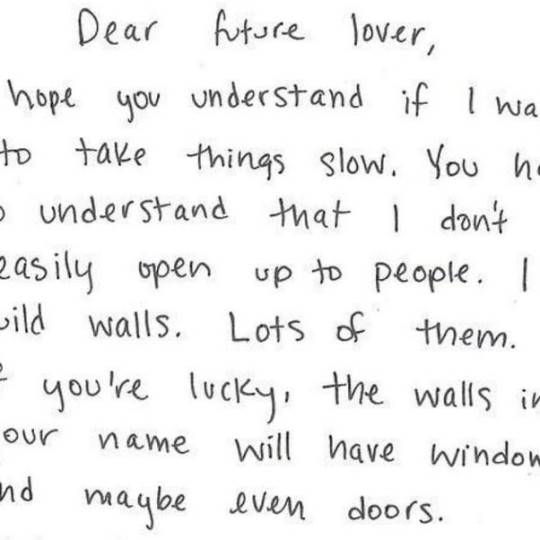 Dear future lover,
hope you understand if I wa
to take things slow. You h
o understand that I don't
easily open up to people. I
uild walls. Lots of them.
f you're lucky, the walls in
our name will have window
nd maybe even doors.